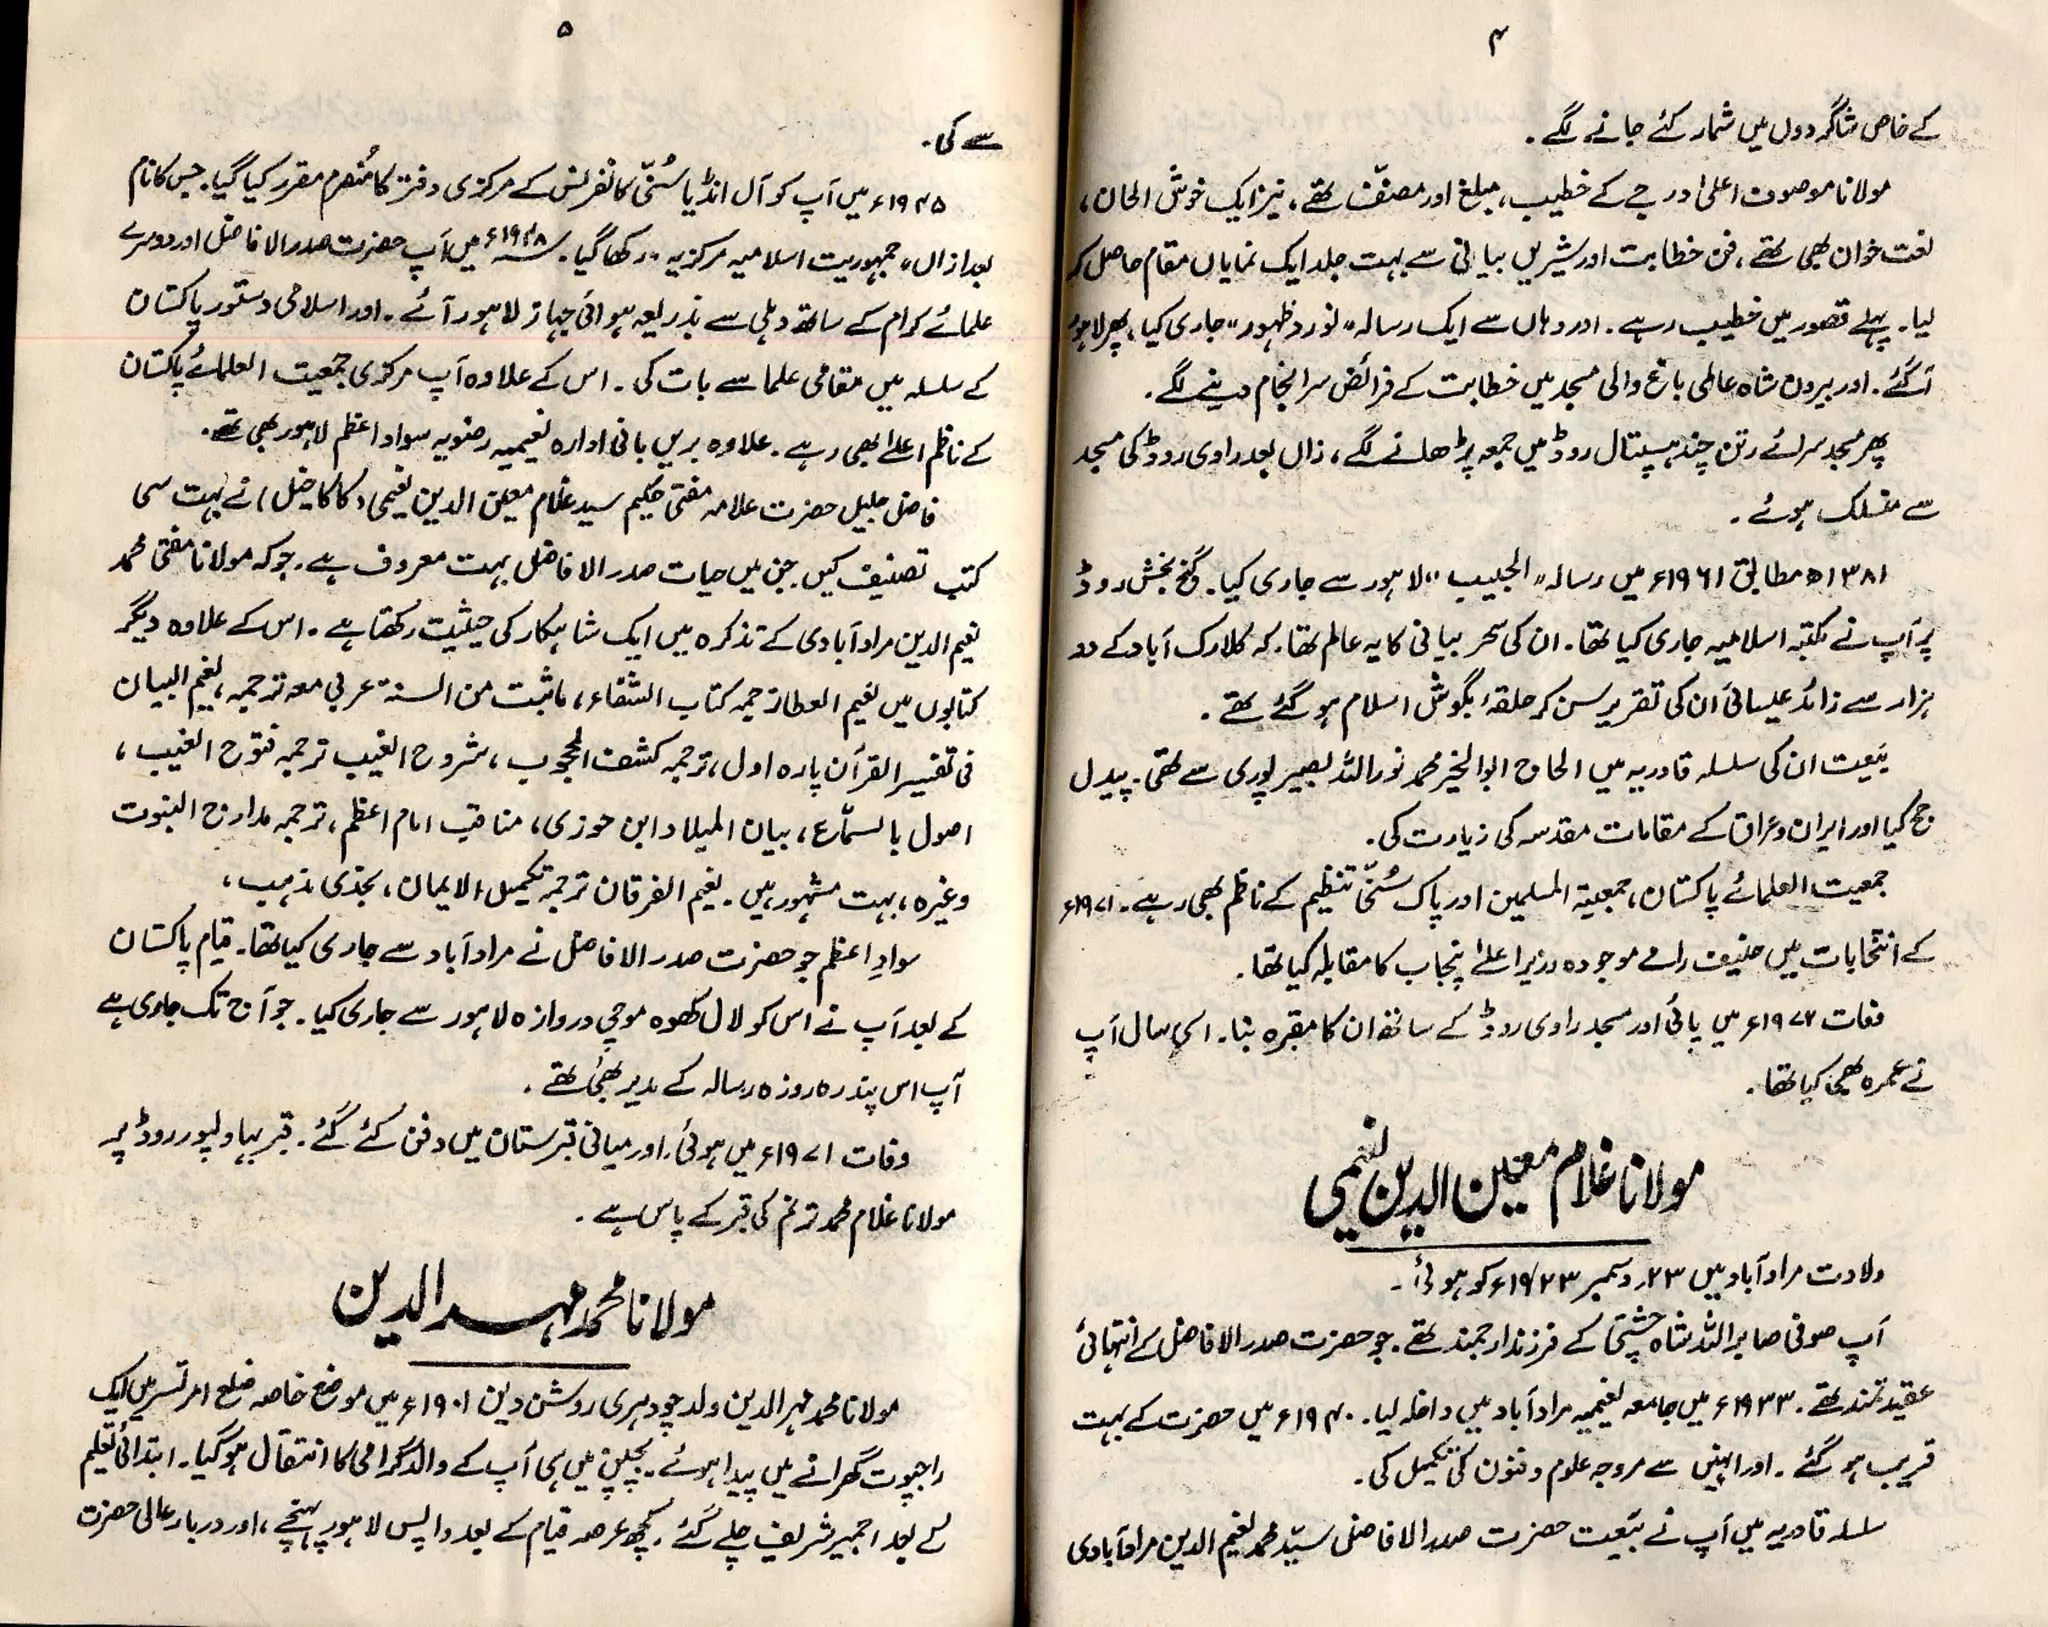 ۴
کے خاص شاگردوں میں شمار کئے جانے لگے۔
مولانا موصوف اعلیٰ درجے کے خطیب، مبلغ اور مصنّف تھے، نیز ایک خوش الحان،
نعت خوان بھی تھے، فن خطابت اور شیریں بیانی سے بہت جلد ایک نمایاں مقام حاصل کر
لیا۔ پہلے قصور میں خطیب رہے۔ اور وہاں سے ایک رسالہ "نور و ظہور" جاری کیا، پھر لاہور
آگئے۔ اور بیرون شاہ عالمی باغ والی مسجد میں خطابت کے فرائض سرانجام دینے لگے۔
پھر مسجد سرائے رتن چند ہسپتال روڈ میں جمعہ پڑھانے لگے، زاں بعد راوی روڈ کی مسجد
سے منسلک ہوئے۔
۱۳۸۱ھ مطابق ۱۹۶۱ء میں رسالہ "الحبیب" لاہور سے جاری کیا۔ گنج بخش روڈ
پر آپ نے مکتبہ اسلامیہ جاری کیا تھا۔ ان کی سحر بیانی کا یہ عالم تھا۔ کہ کلارک آباد کے دو
ہزار سے زائد عیسائی ان کی تقریر سن کر حلقۂ بگوش اسلام ہو گئے تھے۔
بَیعت ان کی سلسلہ قادریہ میں الحاج ابوالخیر محمد نور اللہ بصیر پوری سے تھی۔ پیدل
حج کیا اور ایران و عراق کے مقامات مقدسہ کی زیارت کی۔
جمعیت العلمائے پاکستان، جمعیۃ المسلمین اور پاک سُنّی تنظیم کے ناظم بھی رہے۔ ۱۹۷۱ء
کے انتخابات میں حنیف رامے موجودہ وزیر اعلےٰ پنجاب کا مقابلہ کیا تھا۔
وفات ۱۹۷۲ء میں پائی اور مسجد راوی روڈ کے ساتھ ان کا مقبرہ بنا۔ اسی سال آپ
نے عمرہ بھی کیا تھا۔
مولانا غلام معین الدین نعیمی
ولادت مراد آباد میں ۲۳ر دسمبر ۱۹۲۳ء کو ہوئی۔
آپ صوفی صابر اللہ شاہ چشتی کے فرزند ارجمند تھے۔ جو حضرت صدر الافاضل کے انتہائی
عقیدتمند تھے۔ ۱۹۳۳ء میں جامعہ نعیمیہ مراد آباد میں داخلہ لیا۔ ۱۹۴۰ء میں حضرت کے بہت
قریب ہو گئے۔ اور انہیں سے مروجہ علوم و فنون کی تکمیل کی۔
سلسلہ قادریہ میں آپ نے بَیعت حضرت صدر الافاضل سیّد محمد نعیم الدین مراد آبادی
۵
سے کی۔
۱۹۴۵ء میں آپ کو آل انڈیا سُنّی کانفرنس کے مرکزی دفتر کا مُنصرم مقرر کیا گیا۔ جس کا نام
بعد ازاں "جمہوریت اسلامیہ مرکزیہ" رکھا گیا۔ سنہ ۱۹۴۸ء میں آپ حضرت صدر الافاضل اور دوسرے
علمائے کرام کے ساتھ دہلی سے بذریعہ ہوائی جہاز لاہور آئے۔ اور اسلامی دستور پاکستان
کے سلسلہ میں مقامی علما سے بات کی۔ اس کے علاوہ آپ مرکزی جمعیت العلمائے پاکستان
کے ناظم اعلےٰ بھی رہے۔ علاوہ بریں بانی ادارہ نعیمیہ رضویہ سواد اعظم لاہور بھی تھے۔
فاضل جلیل حضرت علامہ مفتی حکیم سید غلام معین الدین نعیمی (کاکاخیل) نے بہت سی
کتب تصنیف کیں جن میں حیات صدر الافاضل بہت معروف ہے۔ جو کہ مولانا مفتی محمد
نعیم الدین مراد آبادی کے تذکرہ میں ایک شاہکار کی حیثیت رکھتا ہے۔ اس کے علاوہ دیگر
کتابوں میں نعیم العطا ترجمہ کتاب الشفاء، ماثبت من السنۃ عربی معہ ترجمہ، نعیم البیان
فی تفسیر القرآن پارہ اول، ترجمہ کشف المحجوب، شروح الغیب ترجمہ فتوح الغیب،
اصول بالسمّاع، بیان المیلاد ابن جوزی، مناقب امام اعظم، ترجمہ مدارج النبوت
وغیرہ، بہت مشہور ہیں۔ نعیم الفرقان ترجمہ تکمیل الایمان، نجدی مذہب،
سوادِ اعظم جو حضرت صدر الافاضل نے مراد آباد سے جاری کیا تھا۔ قیام پاکستان
کے بعد آپ نے اس کو لال کھوہ موچی دروازہ لاہور سے جاری کیا۔ جو آج تک جاری ہے
آپ اس پندرہ روزہ رسالہ کے مدیر بھی تھے۔
وفات ۱۹۷۱ء میں ہوئی، اور میانی قبرستان میں دفن کئے گئے۔ قبر بہاولپور روڈ پر
مولانا غلام محمد ترنم کی قبر کے پاس ہے۔
مولانا محمد مہر الدین
مولانا محمد مہر الدین ولد چودہری روشن دین ۱۹۰۱ء میں موضع خاصہ ضلع امرتسر میں ایک
راجپوت گھرانے میں پیدا ہوئے۔ بچپن میں ہی آپ کے والد گرامی کا انتقال ہو گیا۔ ابتدائی تعلیم
کے بعد اجمیر شریف چلے گئے۔ کچھ عرصہ قیام کے بعد واپس لاہور پہنچے، اور دربار عالی حضرت